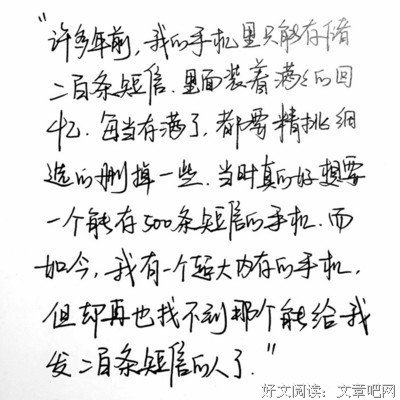 “许多年前，我的手机里只能存储
二百条短信.里面装着满满的回
忆.每当存满了，都要精挑细
选的删掉一些.当时真的好想要
一个能存500条短信的手机.而
如今，我有一个超大内存的手机，
但却再也找不到那个能给我
发二百条短信的人了.”
好文阅读：文章吧网